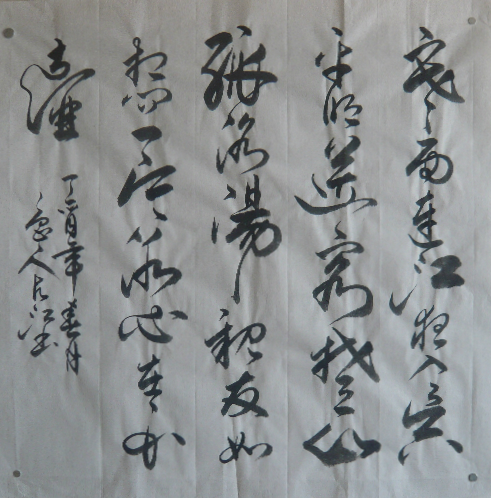 寒雨連江夜入吴
平明送客楚山
孤洛陽親友如
相问一片冰心在玉
壶
丁酉年春月
人江书